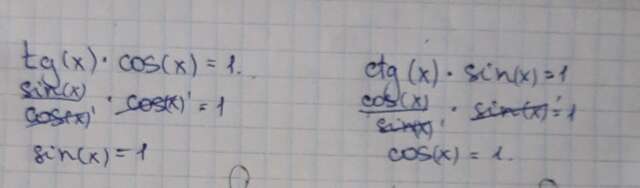 tg(x) · cos(x) = 1.
sin(x)/cos(x) · cos(x) = 1
sin(x) = 1
ctg(x) · sin(x) = 1
cos(x)/sin(x) · sin(x) = 1
cos(x) = 1.